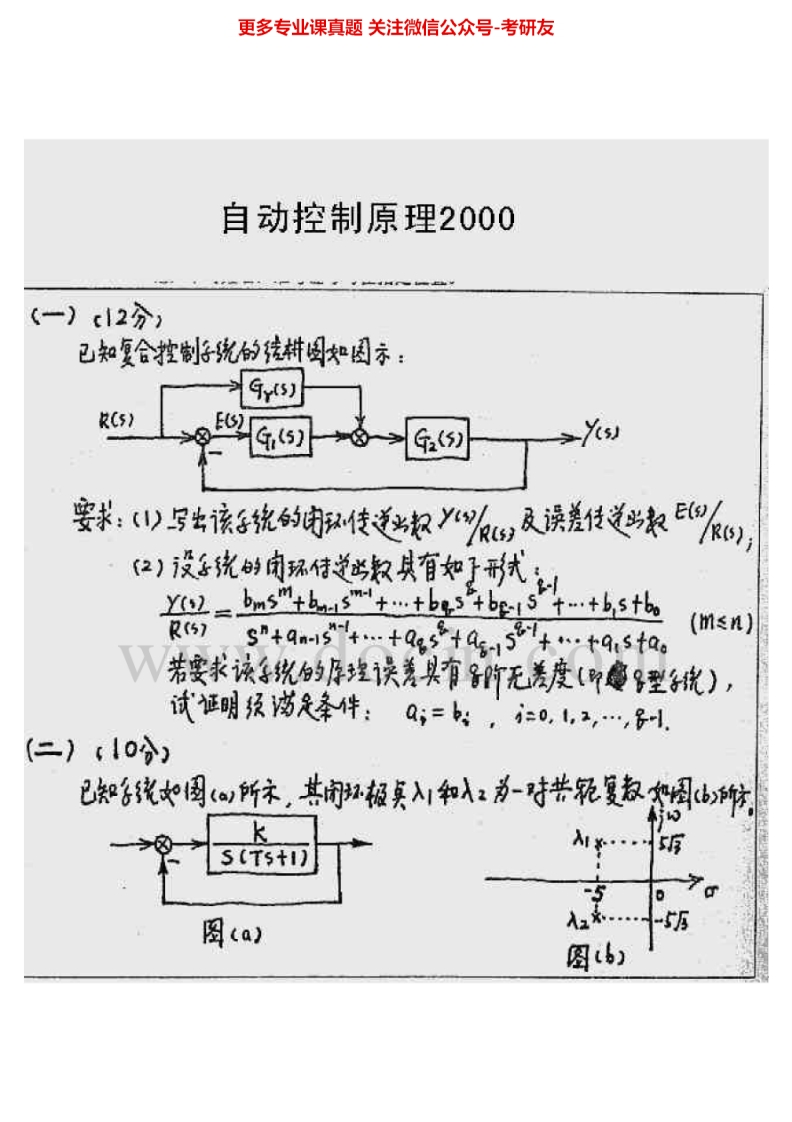 更多专业课真题 关注微信公众号-考研友
自动控制原理2000
(一)(12分)
已知复合控制系统的结构图如图示:
Gr(s)
R(s) E(s) G1(s) G2(s) Y(s)
-
要求:(1)写出该系统的闭环传递函数 Y(s)/R(s) 及误差传递函数 E(s)/R(s);
(2)设系统的闭环传递函数具有如下形式:
Y(s)/R(s) = (bmS^m+bm-1S^m-1+⋯+bqS^q+bq-1S^q-1+⋯+b1s+b0)/(S^n+an-1S^n-1+⋯+aqS^q+aq-1S^q-1+⋯+a1s+a0) (m≤n)
若要求该系统的原理误差具有q阶无差度(即q型系统),
试证明须满足条件: ai=bi, i=0,1,2,⋯,q-1.
(二)(10分)
已知系统如图(a)所示,其闭环极点λ1和λ2为一对共轭复数如图(b)所示。
K/S(TS+1)
-
图(a)
jω
λ1 5√3
-5 0 σ
λ2 -5√3
图(b)
www.docin.com